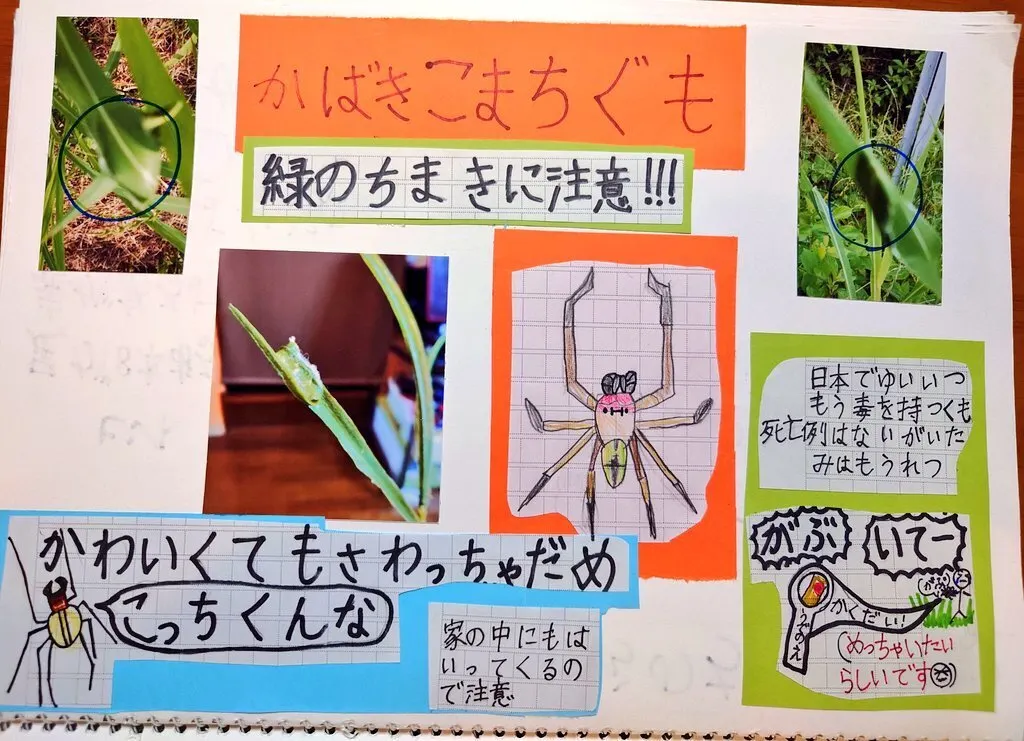 かばきこまちぐも
緑のちまきに注意!!!
日本でゆいいつ
もう毒を持つくも
死亡例はないがいた
みはもうれつ
がぶ
いてー
かくだい!
(めっちゃいたい
らしいです
かわいくてもさわっちゃだめ
こっちくんな
家の中にもは
いってくるの
で注意